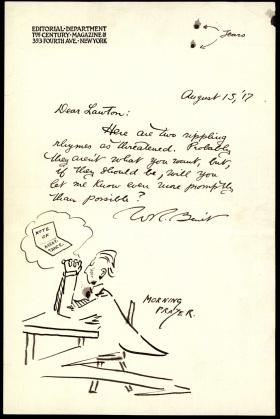 EDITORIAL·DEPARTMENT
THE CENTURY·MAGAZINE @
353 FOURTH AVE.·NEW YORK
Tears
August 15, '17
Dear Lawton:
Here are two rippling
rhymes as threatened. Probably
they aren't what you want, but,
if they should be, will you
let me know even more promptly
than possible?
W R. Benét
NOTE
OF
ACCEP-
TANCE.
MORNING
PRAYER.